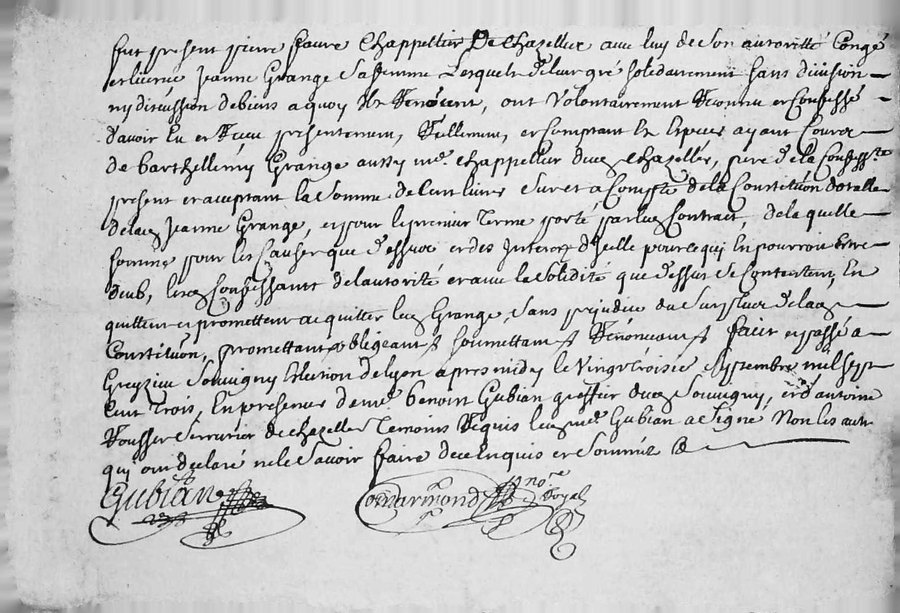 fut present pierre faure Chappellier De Chazelles avec luy de Son autorité Congé
et licence Jeanne Grange Sa femme Lesquels de leur gré Solidairement sans division
ny discussion de biens a quoy Ils Renoncent, ont Volontairement Reconnu et Confessé
d'avoir Eu et Receu presentement, Réellement, et Comptant En Especes ayant Cours
de barthellemy Grange aussy me. Chappellier dud Chazelles, pere de la Confess.te
present et aceptant la Somme de Cent livres Sur et a Compte de la Constitution dotalle
de lad Jeanne Grange, et pour le premier Terme porté par led Contract, de la quelle
Somme pour les Causes que d'essus et des Interets d'Icelle pour ce qui En pourroit Estre
deub, lesd Confessants de l'autorité et avec le Solidité que d'essus Se Contentent, En
quittent et promettent acquitter led Grange, Sans prejudice du Surplus de lad
Constitution, promettant obligeant soumettant Renonceant faict et passé a
Greyzieu Souvigny Election de lyon apres midy le Vingt troisie Septembre mil sept
Cent trois, En presence de me. benoist Gubian greffier dud Souvigny, et d'antoine
Rousset Serrurier de Chazelles Temoins Requis led me. Gubian a Signé Non les autr
qui ont declaré ne le Scavoir faire de ce Enquis et Sommés
Gubian
Comdarmond no.re Royal